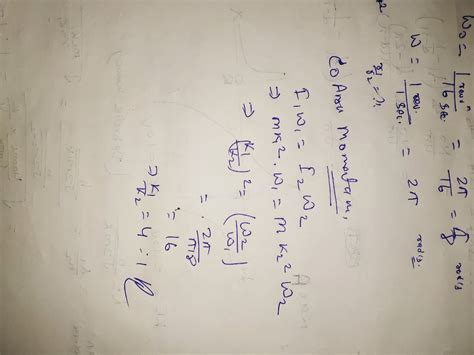 ω₀ = 1 rev / 16 sec. = 2π / 16 = π/8 rad/s
ω = 1 rev. / 1 sec. = 2π rad/s.
I₁ω₁ = I₂ω₂
⇒ mK₁². ω₁ = m K₂² ω₂
⇒ (K₁/K₂)² = (ω₂/ω₁)
= 2π / π/8
= 16
⇒ K₁/K₂ = 4 : 1